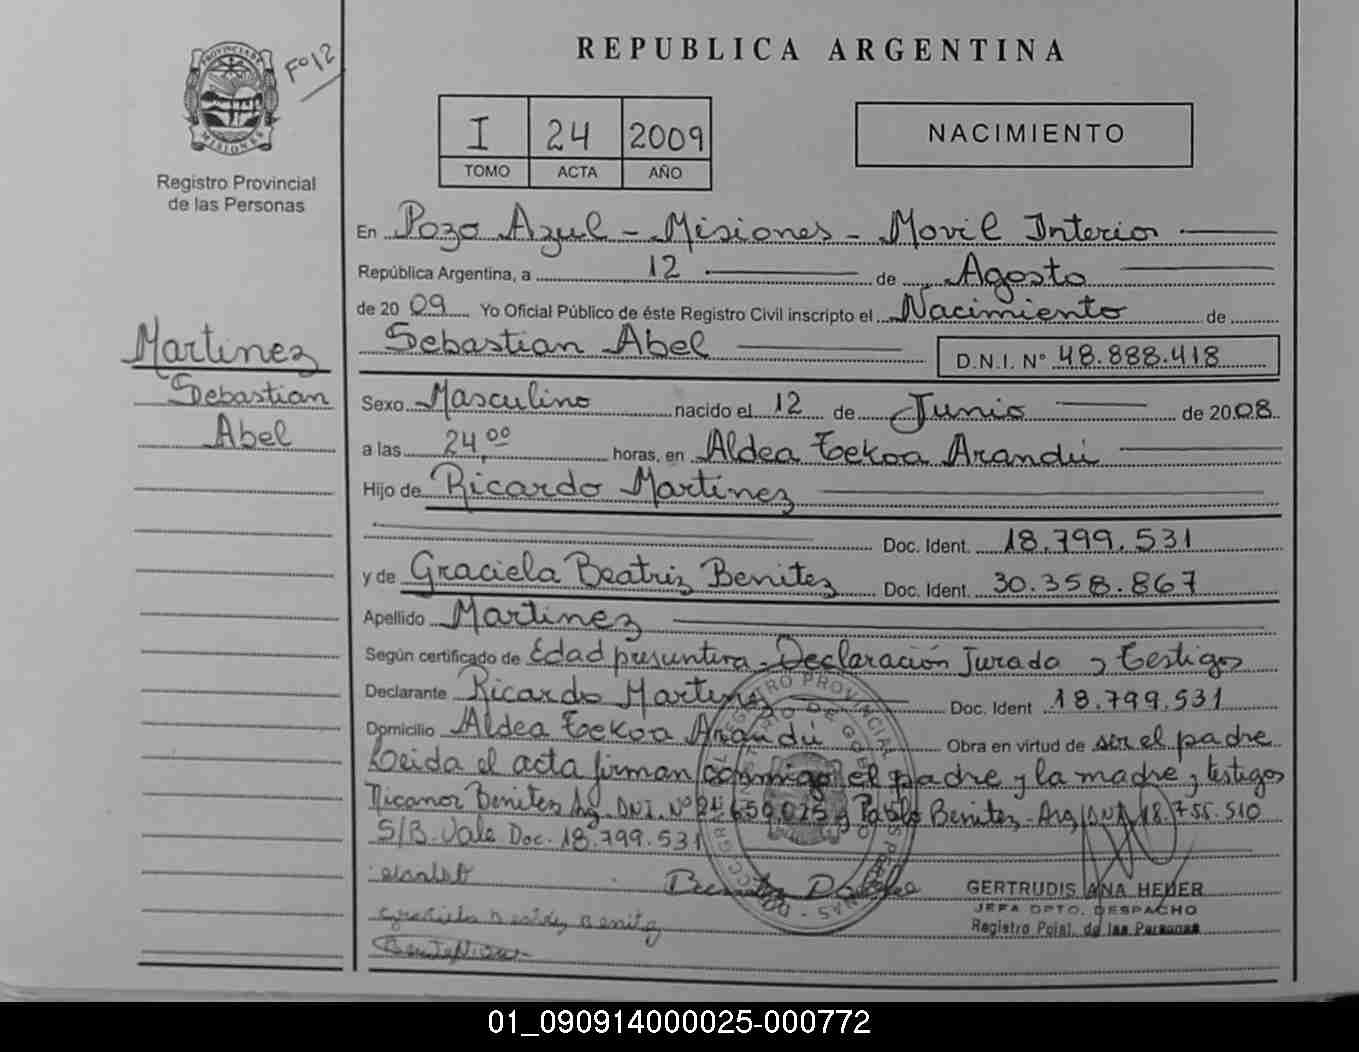 Fº12
PROVINCIA DE
MISIONES
Registro Provincial
de las Personas
REPUBLICA ARGENTINA
I 24 2009
TOMO ACTA AÑO
NACIMIENTO
En Pozo Azul - Misiones - Movil Interior
República Argentina, a 12 de Agosto
de 2009 Yo Oficial Público de éste Registro Civil inscripto el Nacimiento de
Sebastian Abel D.N.I. Nº 48.888.418
Martinez
Sebastian
Abel
Sexo Masculino nacido el 12 de Junio de 2008
a las 24,00 horas, en Aldea Tekoa Arandú
Hijo de Ricardo Martinez
Doc. Ident. 18.799.531
y de Graciela Beatriz Benitez Doc. Ident. 30.358.867
Apellido Martinez
Según certificado de Edad presuntiva - Declaración Jurada y testigos
Declarante Ricardo Martinez Doc. Ident 18.799.531
Domicilio Aldea Tekoa Arandú Obra en virtud de ser el padre
Leida el acta firman conmigo el padre y la madre, testigos
Nicanor Benitez Arg. DNI. Nº 21.659.025 y Pablo Benitez - Arg DNI 18.755.510
S/B. Vale Doc. 18.799.531
GERTRUDIS ANA HEDER
JEFA DPTO. DESPACHO
Registro Pcial. de las Personas
Graciela Beatriz Benitez
01_090914000025-000772